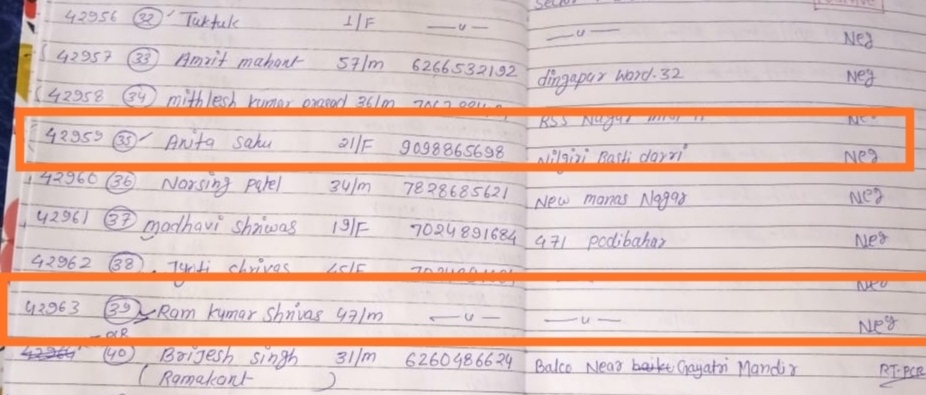 42956 32 Tuktuk 1/F —u— —u— Neg
42957 33 Amrit mahant 57/m 6266532192 dingapur word-32 Neg
42958 34 mithlesh kumar prasad 36/m RSS Nagar
42959 35 Anita sahu 21/F 9098865698 Nilgiri Basti darri Neg
42960 36 Narsing patel 34/m 7828685621 New manas Nagar Neg
42961 37 madhavi shriwas 19/F 7024891684 471 podibahar Neg
42962 38 Jyoti Neg
42963 39 Ram kumar Shrivas 47/m —u— —u— Neg
42964 40 Brijesh singh 31/m 6260486624 Balco Near Gayatri Mandir RT-PCR
(Ramakant )